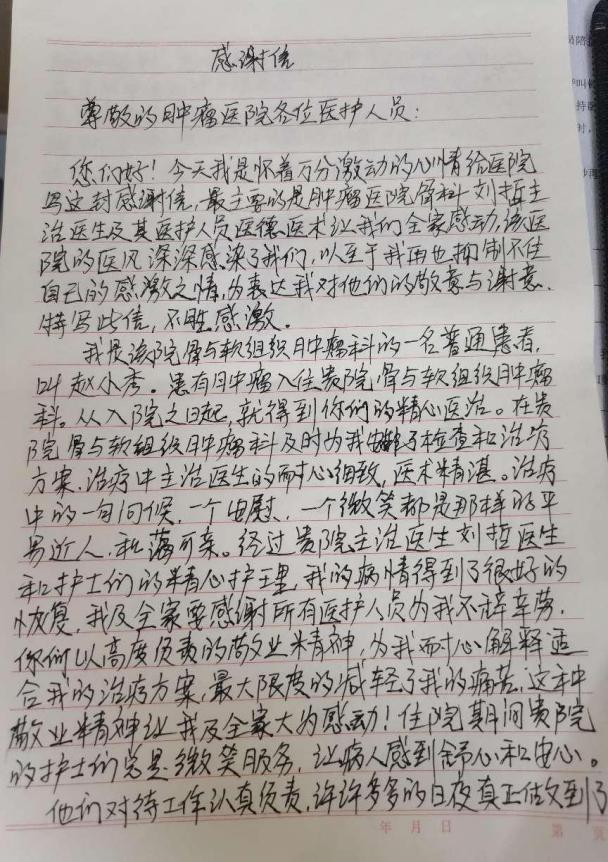 感谢信
尊敬的肿瘤医院各位医护人员：
您们好！今天我是怀着万分激动的心情给医院
写这封感谢信，最主要的是肿瘤医院骨科刘哲主
治医生及其医护人员医德医术让我们全家感动，该医
院的医风深深感染了我们，以至于我再也抑制不住
自己的感激之情，为表达我对他们的敬意与谢意，
特写此信，不胜感激。
我是该院骨与软组织肿瘤科的一名普通患者，
叫赵小秀。患有肿瘤入住贵院骨与软组织肿瘤
科。从入院之日起，就得到你们的精心医治。在贵
院骨与软组织肿瘤科及时为我安排了检查和治疗
方案，治疗中主治医生的耐心细致，医术精湛。治疗
中的一句问候，一个安慰，一个微笑都是那样的平
易近人，和蔼可亲。经过贵院主治医生刘哲医生
和护士们的精心护理，我的病情得到了很好的
恢复，我及全家要感谢所有医护人员为我不辞辛劳，
你们以高度负责的敬业精神，为我耐心解释适
合我的治疗方案，最大限度的减轻了我的痛苦，这种
敬业精神让我及全家大为感动！住院期间贵院
的护士们总是微笑服务，让病人感到舒心和安心。
他们对待工作认真负责，许许多多的日夜真正做到了
年 月 日 第 页